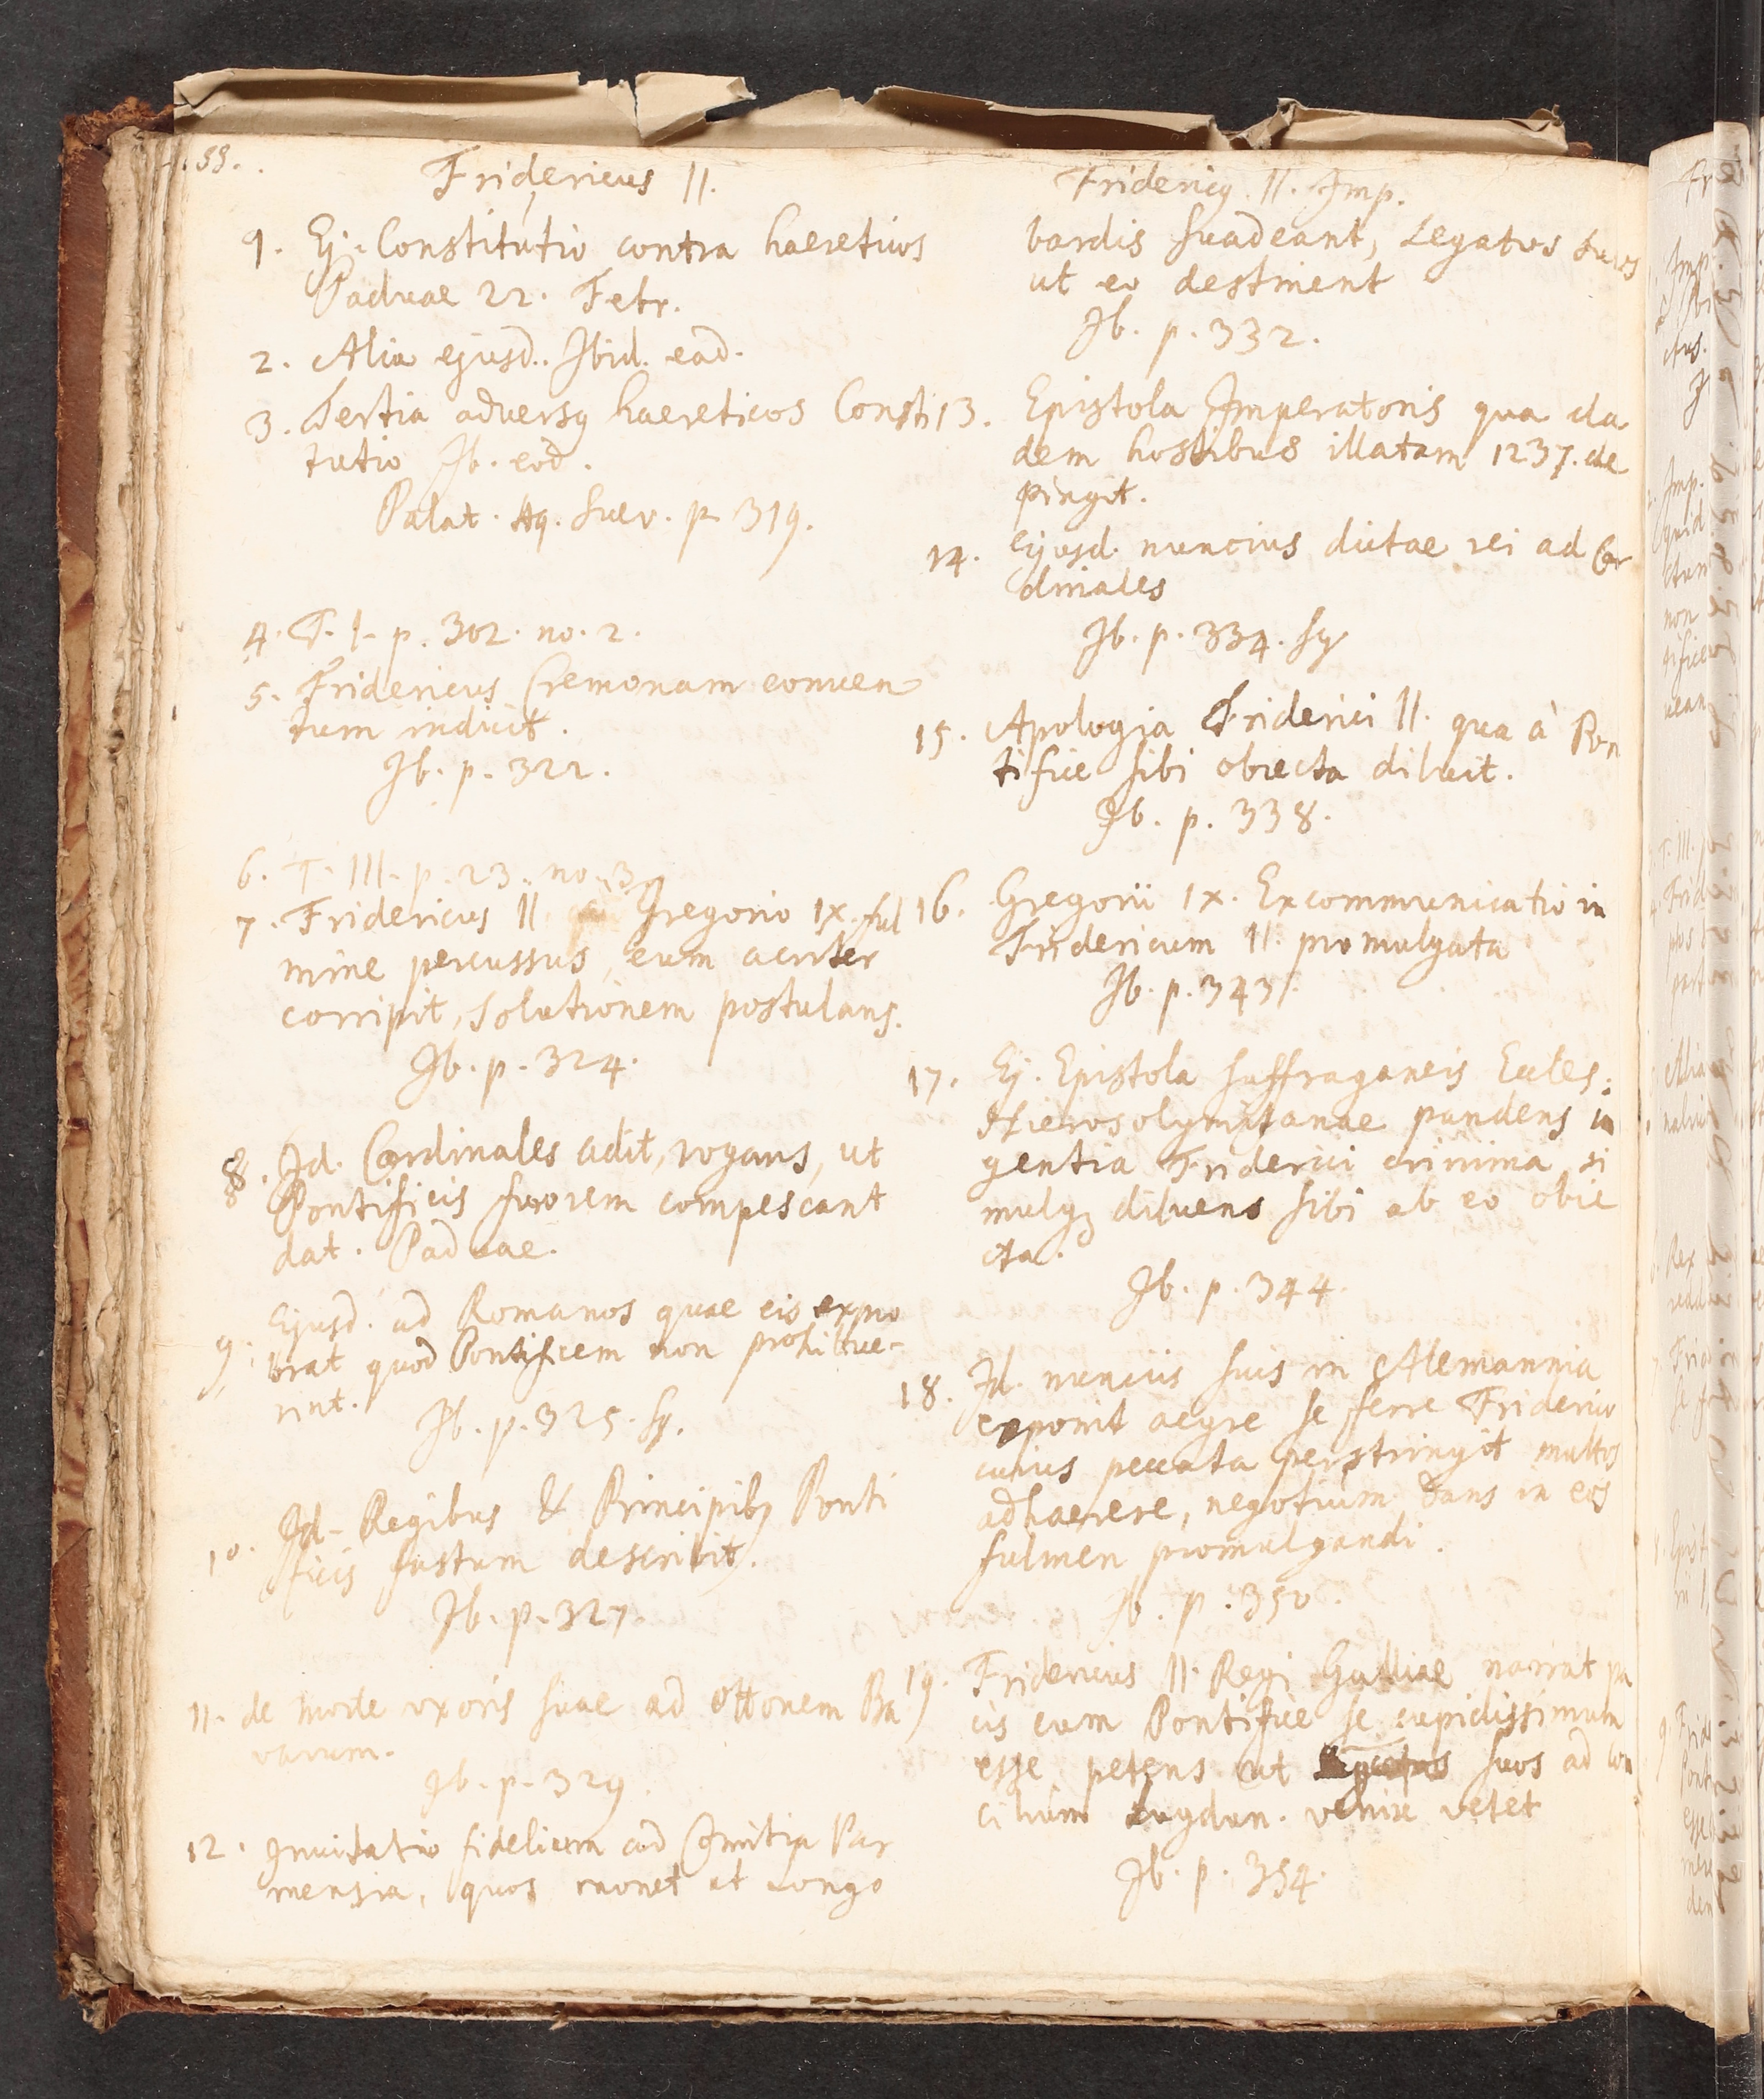 55.
Fridericus II.
1. Ej. Constitutio contra haereticos
Paduae 22. Febr.
2. Alia ejusd. Ibid. ead.
3. Tertia adversq haereticos Consti
tutio Ib. eod.
Palat. Aq. Suev. p. 319.
4. T. I. p. 302. no. 2.
5. Fridericus Cremonam conven
tum indicit.
Ib. p. 322.
6. T. III. p. 23. no. 3.
7. Fridericus II. Gregorio IX. ful
mine percussus, eum acriter
corripit, solutionem postulans.
Ib. p. 324.
8. Id. Cardinales adit, rogans, ut
Pontificis furorem compescant
dat. Paduae.
9. Ejusd. ad Romanos quae eis expro
brat quod Pontificem non prohibue-
rint.
Ib. p. 325. sq.
10. Id. Regibus & Principibq Ponti
ficis fastum describit.
Ib. p. 327.
11. de morte uxoris suae ad Ottonem Ba
varum.
Ib. p. 329.
12. Invitatio fidelium ad Comitia Par
mensia, quos monet ut Longo
Fridericq. II. Imp.
bardis suadeant, Legatos suos
ut eo destinent
Ib. p. 332.
13. Epistola Imperatoris qua cla
dem hostibus illatam 1237. de
pingit.
14. Ejusd. nuncius dictae rei ad Car
dinales
Ib. p. 334. sq
15. Apologia Friderici II. qua à Pon
tifice sibi obiecta diluit.
Ib. p. 338.
16. Gregorii IX. Excommunicatio in
Fridericum II. promulgata
Ib. p. 343.
17. Ej. Epistola suffraganeis Eccles.
Hierosolymitanae pandens in
gentia Friderici crimina si
mulq diluens sibi ab eo obie
cta.
Ib. p. 344.
18. Id. nunciis suis in Alemannia
exponit aegre se ferre Friderico
cuius peccata perstringit multos
adhaerere, negotium dans in eos
fulmen promulgandi.
Ib. p. 350.
19. Fridericus II. Regi Galliae narrat pa
cis cum Pontifice se cupidissimum
esse petens ut suos ad con
cilium Lugdun. venire vetet
Ib. p. 354.